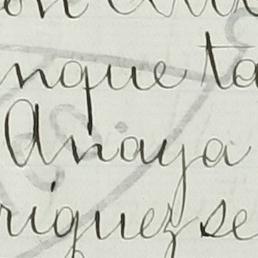 nque ta
Anaya
riquez se